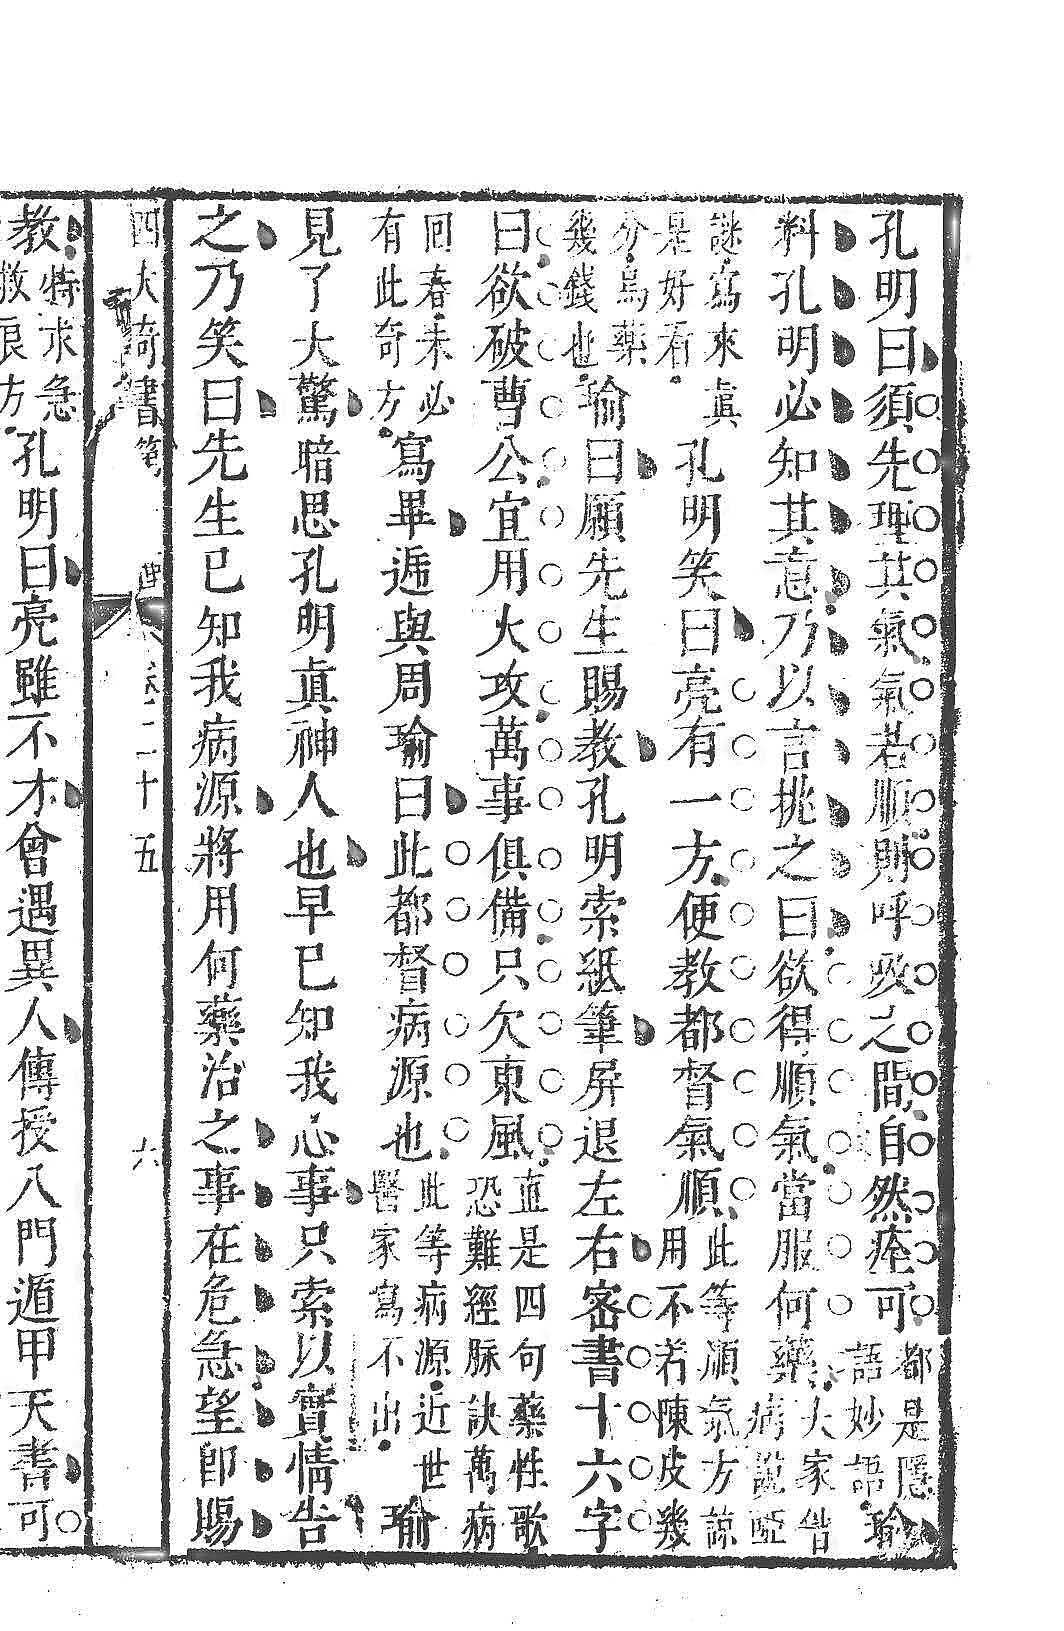 孔明曰須先理其氣氣若順則呼吸之間自然痊可都是隱語妙語瑜
料孔明必知其意乃以言挑之曰欲得順氣當服何藥大家借病說啞
謎寫來真是好看孔明笑曰亮有一方便教都督氣順此等順氣方諒用不若陳皮幾
分烏藥幾錢也瑜曰願先生賜教孔明索紙筆屏退左右密書十六字
曰欲破曹公宜用火攻萬事俱備只欠東風直是四句藥性歌恐難經脉訣萬病
回春未必有此奇方寫畢遞與周瑜曰此都督病源也此等病源近世醫家寫不出瑜
見了大驚暗思孔明真神人也早已知我心事只索以實情告
之乃笑曰先生已知我病源將用何藥治之事在危急望即賜
四大奇書第 卷二十五 六
教特求急救良方孔明曰亮雖不才曾遇異人傳授八門遁甲天書可